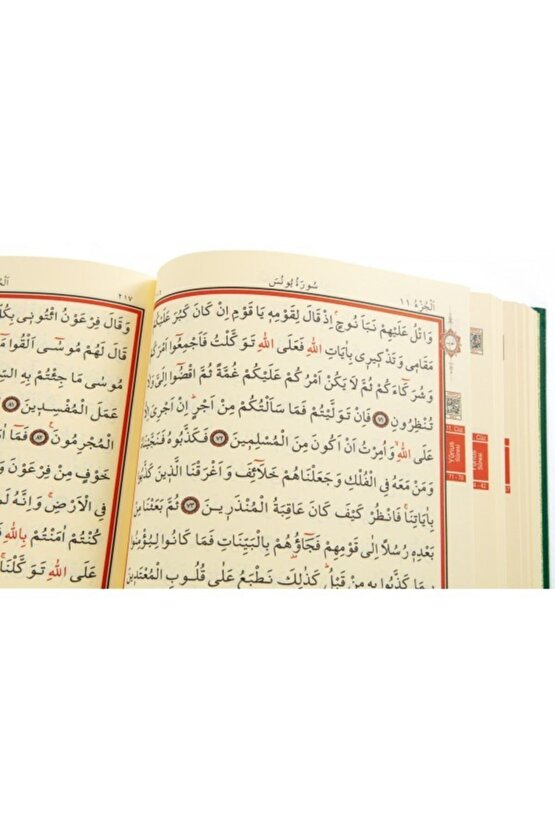 سُورَةُ يُونُسَ
اَلْجُزْءُ ١١
وَاتْلُ عَلَيْهِمْ نَبَاَ نُوحٍۢ اِذْ قَالَ لِقَوْمِه۪ يَا قَوْمِ اِنْ كَانَ كَبُرَ عَلَيْكُمْ
مَقَام۪ي وَتَذْك۪ير۪ي بِاٰيَاتِ اللّٰهِ فَعَلَى اللّٰهِ تَوَكَّلْتُ فَاَجْمِعُٓوا اَمْرَكُمْ
وَشُرَكَٓاءَكُمْ ثُمَّ لَا يَكُنْ اَمْرُكُمْ عَلَيْكُمْ غُمَّةً ثُمَّ اقْضُٓوا اِلَيَّ وَلَا
تُنْظِرُونِ ٧١ فَاِنْ تَوَلَّيْتُمْ فَمَا سَاَلْتُكُمْ مِنْ اَجْرٍۜ اِنْ اَجْرِيَ اِلَّا
عَلَى اللّٰهِۙ وَاُمِرْتُ اَنْ اَكُونَ مِنَ الْمُسْلِم۪ينَ ٧٢ فَكَذَّبُوهُ فَنَجَّيْنَاهُ
وَمَنْ مَعَهُ فِي الْفُلْكِ وَجَعَلْنَاهُمْ خَلَٓائِفَ وَاَغْرَقْنَا الَّذ۪ينَ كَذَّبُوا
بِاٰيَاتِنَاۚ فَانْظُرْ كَيْفَ كَانَ عَاقِبَةُ الْمُنْذَر۪ينَ ٧٣ ثُمَّ بَعَثْنَا مِنْ
بَعْدِه۪ رُسُلًا اِلٰى قَوْمِهِمْ فَجَٓاؤُ۫هُمْ بِالْبَيِّنَاتِ فَمَا كَانُوا لِيُؤْمِنُوا
بِمَا كَذَّبُوا بِه۪ مِنْ قَبْلُۜ كَذٰلِكَ نَطْبَعُ عَلٰى قُلُوبِ الْمُعْتَد۪ينَ
11. Cüz
Yûnus
Sûresi
71 - 78
٢١٧
وَقَالَ فِرْعَوْنُ ائْتُون۪ي بِكُلِّ
قَالَ لَهُمْ مُوسٰٓى اَلْقُوا
مُوسٰى مَا جِئْتُمْ بِهِ
عَمَلَ الْمُفْسِد۪ينَ ٨١
الْمُجْرِمُونَ ٨٢ فَمَٓا
خَوْفٍ مِنْ فِرْعَوْنَ
فِي الْاَرْضِۚ وَاِنَّهُ
كُنْتُمْ اٰمَنْتُمْ بِاللّٰهِ
عَلَى اللّٰهِ تَوَكَّلْنَاۚ